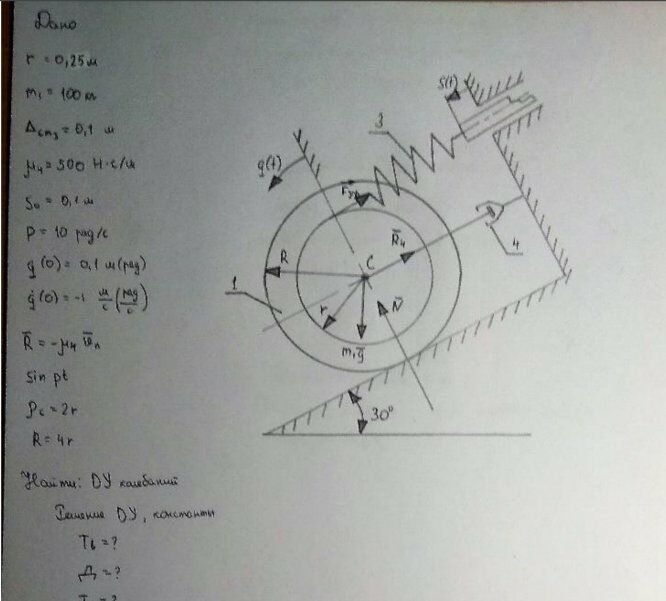 Дано
r = 0,25 м
m₁ = 100 кг
Δст₃ = 0,1 м
μ₄ = 500 Н·с/м
S₀ = 0,1 м
p = 10 рад/с
q(0) = 0,1 м (рад)
q̇(0) = -1 м/с (рад/с)
R̄ = -μ₄ v̄п
sin pt
ρc = 2r
R = 4r
Найти: ДУ колебаний
Решение ДУ, константы
Tb = ?
Д = ?
S(t)
3
q(t)
R
R̄₄
4
C
1
r
N̄
m₁ḡ
30°